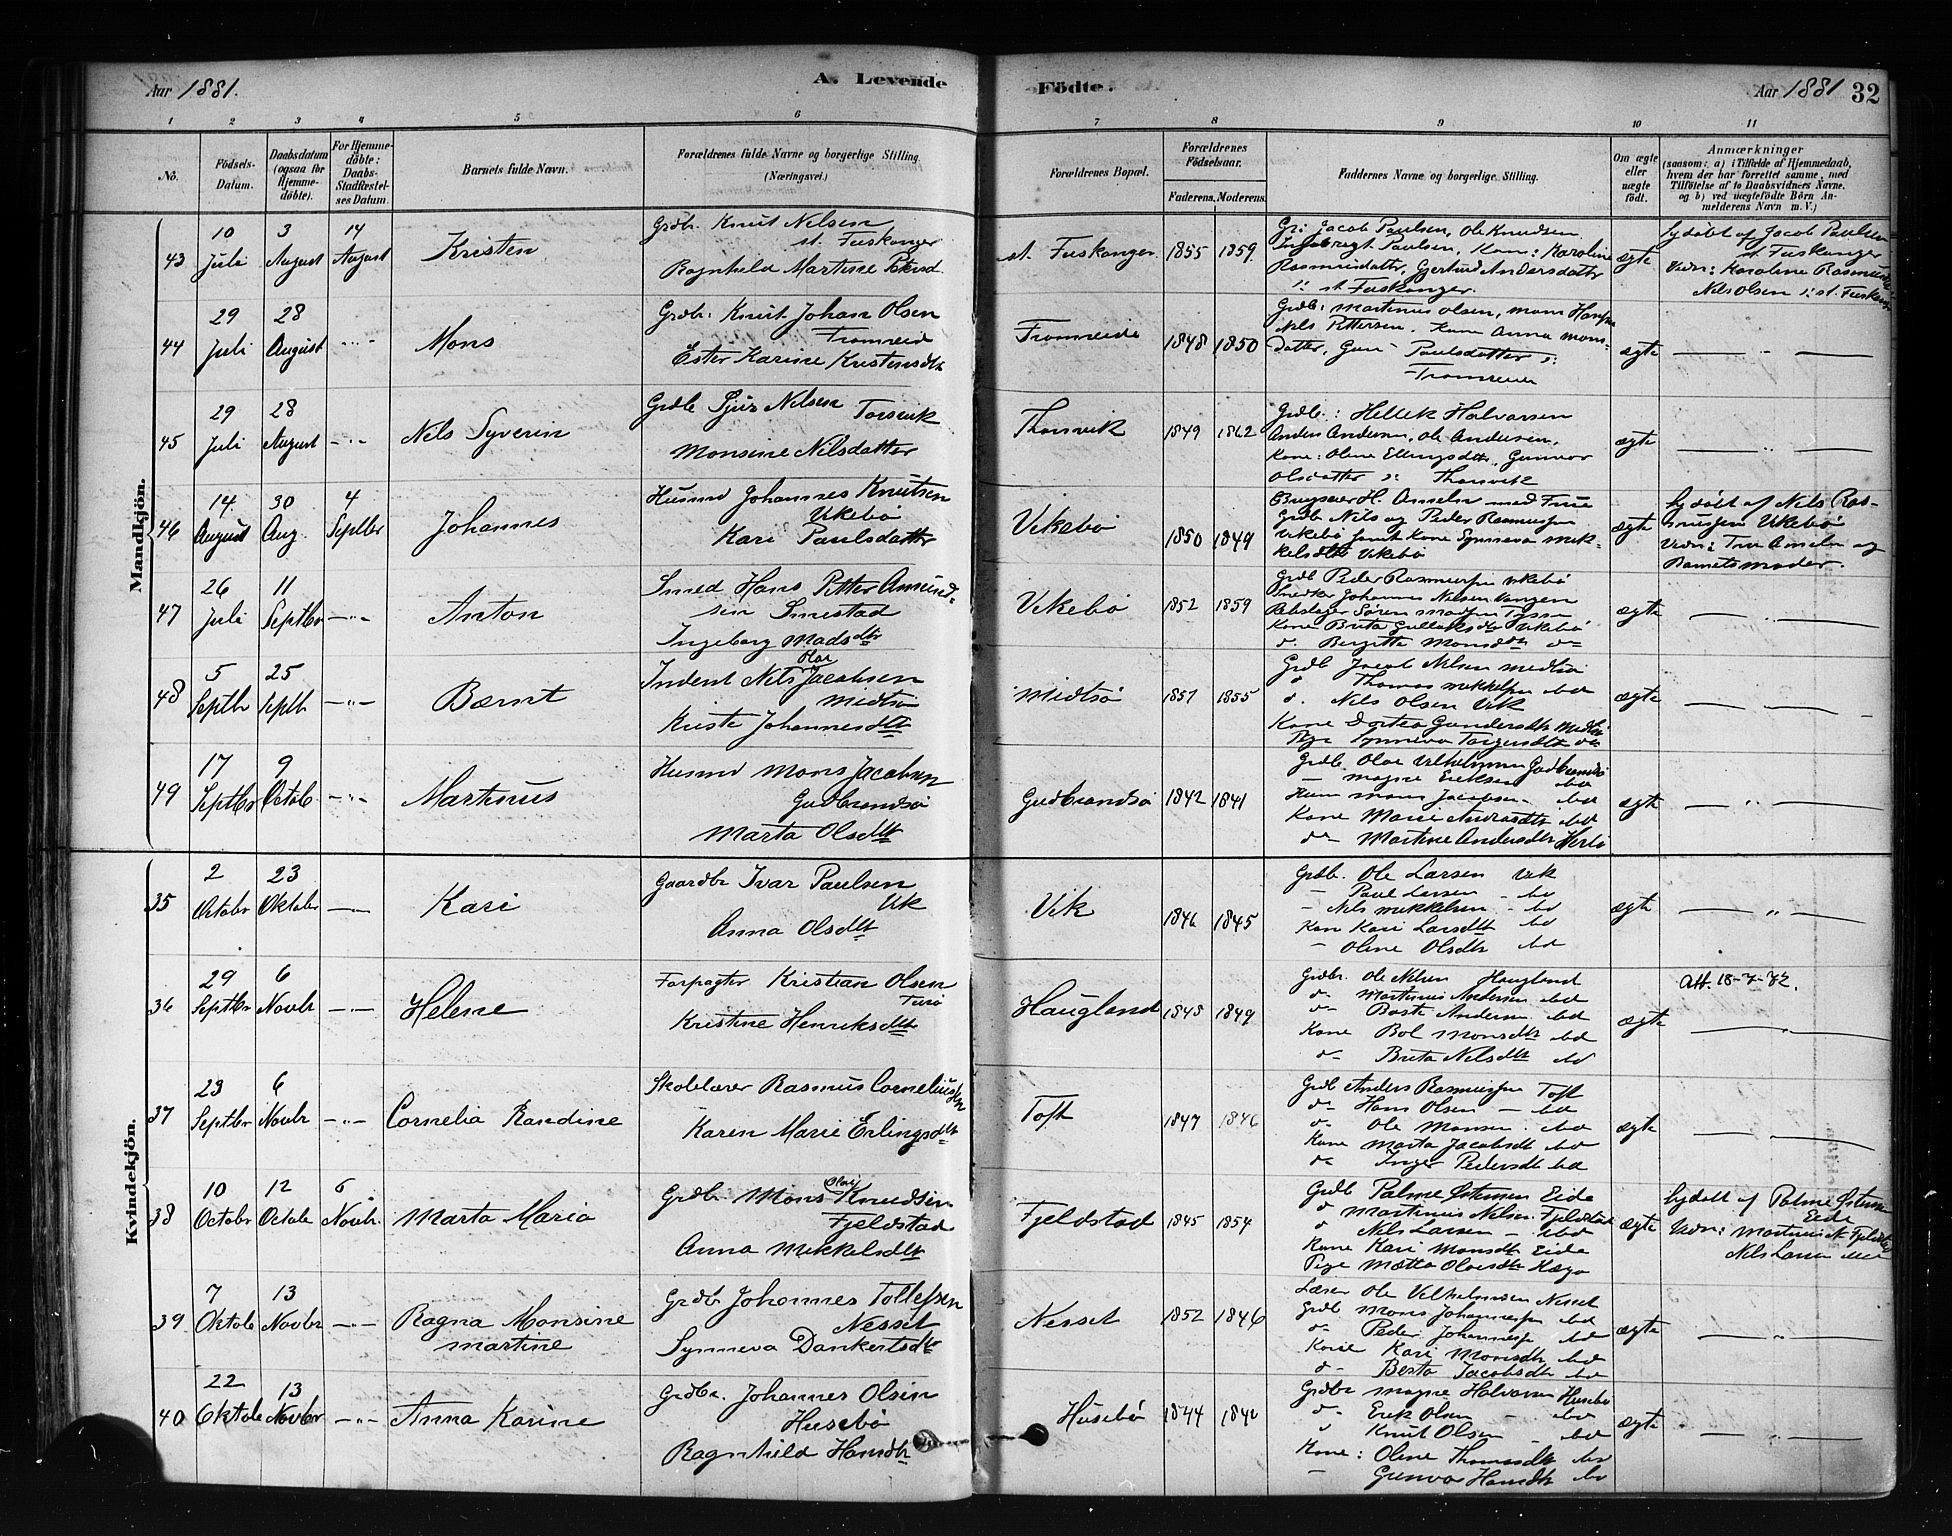 Aar 1881.
A. Levende
Födte.
Aar 1881
32
1 2 3 4 5 6 7 8 9 10 11
No.
Födsels-Datum.
Daabsdatum (ogsaa for Hjemmedöbte).
For Hjemmedöbte: Daabs-Stadfæstelses Datum.
Barnets fulde Navn.
Forældrenes fulde Navne og borgerlige Stilling.
(Næringsvei.)
Forældrenes Bopæl.
Forældrenes Födselsaar.
Faderens. Moderens.
Faddernes Navne og borgerlige Stilling.
Om ægte eller uægte födt.
Anmærkninger
(saasom: a) i Tilfælde af Hjemmedaab, hvem der har forrettet samme, med Tilföielse af to Daabsvidners Navne, og b) ved uægtefödte Börn Anmelderens Navn m. V.)
Mandkjön.
43 10 Juli 3 August 14 August Kristen
Grdbr. Knut Nilsen
st. Fuskanger
Ragnhild Martine
st. Fuskanger 1855 1859
Gr: Jacob Paulsen, Ole Knudsen,
Ingebrigt Paulsen, Kone: Karoline
Rasmusdatter, Gjertrud Andersdatter
st. Fuskanger.
ægte
hjdöbt af Jacob Paulsen
st. Fuskanger
Vidn: Karoline
Nils Olsen st. Fuskanger
44 29 Juli 28 August Mons
Grdbr: Knut Johan Olsen
Tromreid
Ester Karine Kristensdtr
Tromreide 1848 1850
Grdb: Martinus Olsen, Mons
Nils Pettersen, Kone Anna Mons-
datter, Paulsdatter
ægte
45 29 Juli 28 August Nils Syverin
Grdbr Sjur Nilsen Torsvik
Monsine Nilsdatter
Thorsvik 1849 1862
Grdb.: Hellek Halvorsen
Anders Andersen, Ole Andersen,
Kone: Oline Ellingsdtr, Gunvor
Olsdatter Thorsvik
ægte
46 14 August 30 Aug. 4 Septbr Johannes
Husmd Johannes Knutsen
Vikebö
Kari Paulsdatter
Vikebö 1850 1849
H. Ameln med Frue
Grdb Nils og Peder Rasmussen
Vikebö samt Kone Synneva Mik-
kelsdtr Vikebö
ægte
hjdöbt af Nils Ras-
mussen Vikebö
Vidn: Fru Ameln og
Barnets moder.
47 26 Juli 11 Septbr Anton
Smed Hans Petter Amund-
sen Smestad
Ingeborg Madsdtr
Vikebö 1852 1859
Grdb Peder Rasmussen Vikebö
Snedker Johannes Nilsen Vangen
Rebslager Sören Madsen
Kone Brita Vikebö
d. Bergitte Monsdtr do
ægte
48 5 Septbr 25 Septb Bærnt
Inderst Nils Olai Jacobsen
Midtsö
Kirsti Johannesdtr
Midtsö 1857 1855
Grdb Jacob Nilsen Midtsö
d Thomas Mikkelsen ibd
d. Nils Olsen Vik
Kone Dortea Gundersdtr Midtsö
Pige Synneva do
ægte
49 17 Septbr 9 Octob Martinus
Husmd Mons Jacobsen
Gudbrandsö
Marta Olsdtr
Gudbrandsö 1842 1841
Grdb. Olai Vilhelmsen Gudbrandsö
— Magne Eriksen ibd
Husm Mons Jacobsen ibd
Kone Marie Andreasdtr ibd
do Martine Andersdtr Herlö
ægte
Kvindekjön.
35 2 Octobr 23 Oktobr Kari
Gaardbr Ivar Paulsen
Vik
Anna Olsdtr
Vik 1846 1845
Grdb. Ole Larsen Vik
— Paul Larsen ibd
— Nils Mikkelsen ibd
Kone Kari Larsdtr ibd
— Oline Olsdtr ibd
ægte
36 29 Septbr 6 Novbr Helene
Forpagter Kristian Olsen
Kristine Henriksdtr
Haugland 1845 1849
Grdbr. Ole Nilsen Haugland
do Martinus Andersen ibd
do Andersen ibd
Kone Bol Monsdtr ibd
do Brita Nilsdtr ibd
ægte
Att. 18-7-82.
37 23 Septbr 6 Novbr Cornelia Randine
Skolelærer Rasmus Corneliussen
Karen Marie Erlingsdtr
Toft 1847 1846
Grdb Anders Rasmussen Toft
do Hans Olsen — ibd
do Ole Monsen ibd
Kone Marta Jacobsdtr ibd
do Inger Pedersdtr ibd
ægte
38 10 Octobr 12 Octob 6 Novbr. Marta Maria
Grdbr. Mons Olai Knudsen
Fjeldstad
Anna Mikkelsdtr
Fjeldstad 1845 1854
Grdb Palme Eide
d Martinus Nilsen Fjeldstad
d Nils Larsen — ibd
Kone Kari Monsdtr Eide
Pige Olsdtr
ægte
hjdöbt af Palme
Eide
Vidn: Martinus N. Fjeldstad
Nils Larsen ibd
39 7 Oktob 13 Novbr Ragna Monsine Martine
Grdbr Johannes Tollefsen
Nesset
Synneva Dankertsdtr
Nesset 1852 1846
Lærer Ole Vilhelmsen Nesset
Grdb Mons Johannessen ibd
do Peder Johannessen ibd
Kone Kari Monsdtr ibd
do Berta Jacobsdtr ibd
ægte
40 22 Oktob 13 Novbr Anna Karine
Grdbr. Johannes Olsen
Husebö
Ragnhild Hansdtr
Husebö 1844
Grdbr Magne Halvorsen Husebö
do Erik Olsen — ibd
d Knut Olsen — ibd
Kone: Oline Thomasdtr ibd
— Gunvor Hansdtr ibd
ægte